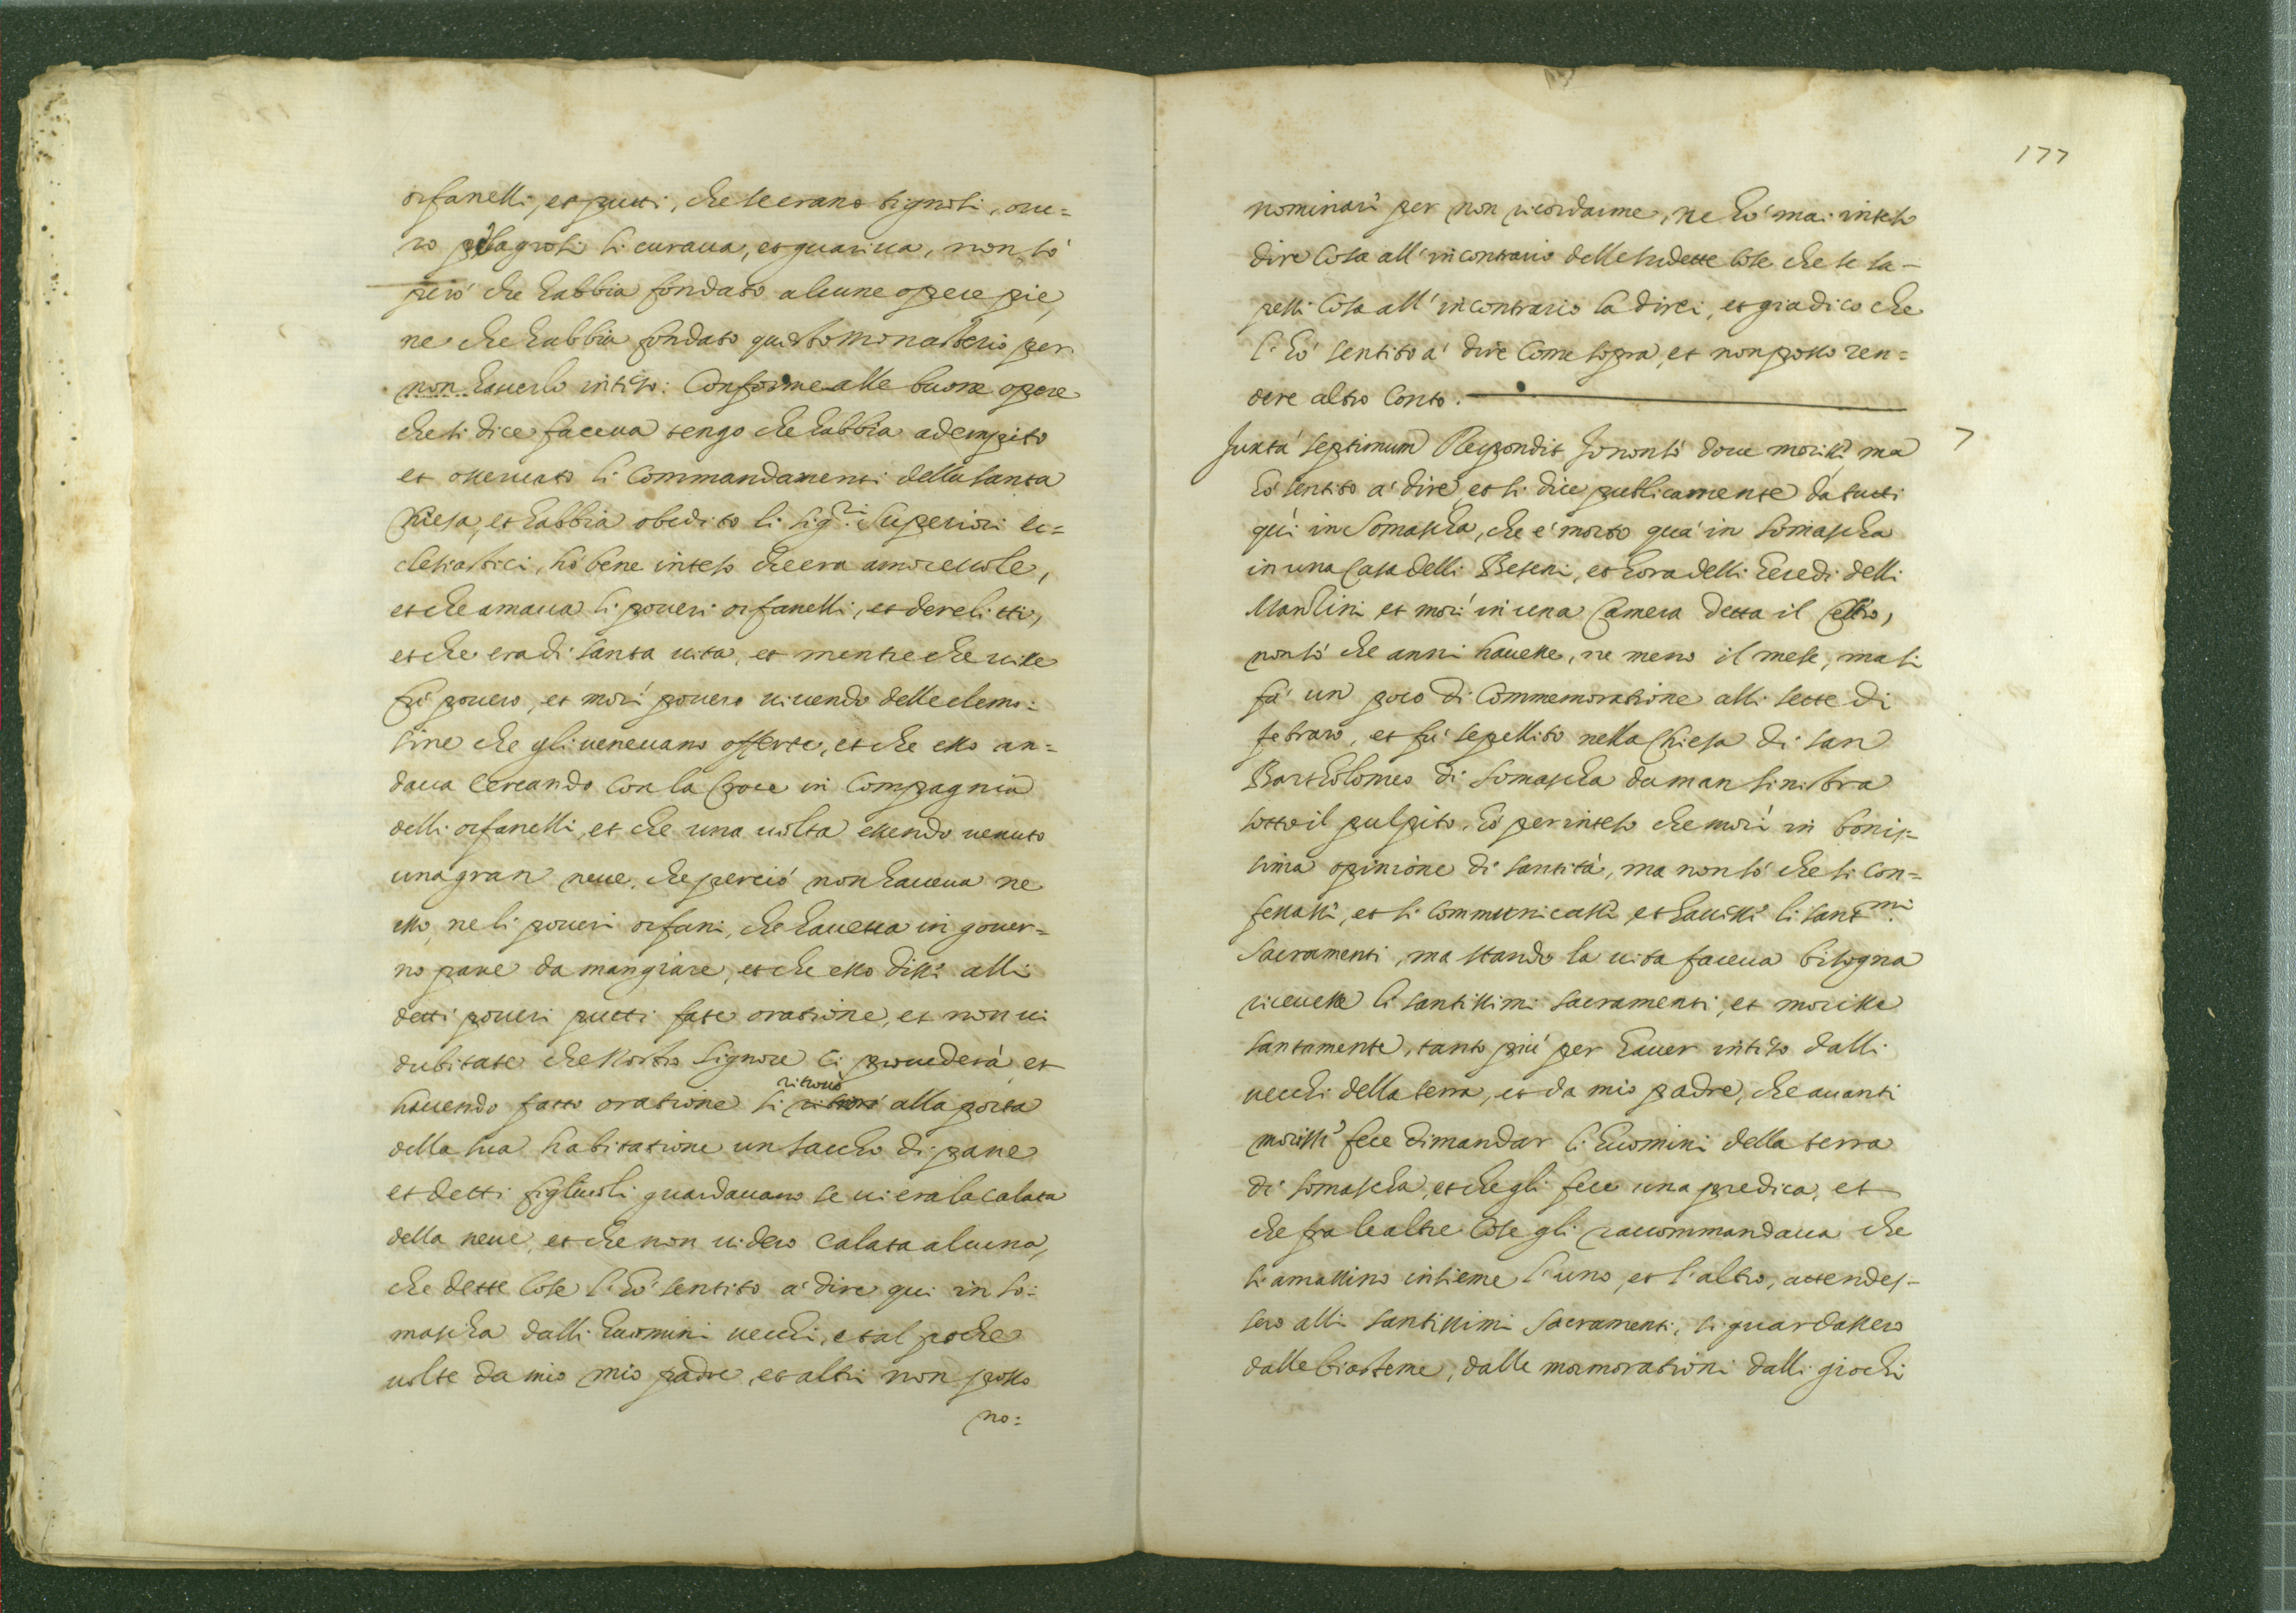 orfanelli, et putti, che se erano tignosi, oue=
ro piagosi li curaua, et guariua, non sò
però che habbia fondato alcune opere pie,
ne che habbia fondato questo monasterio per
non hauerlo inteso: Conforme alle buone opere
che si dice faceua tengo che habbia adempito
et osseruato li Commandamenti della santa
Chiesa, et habbia obedito li sig.ri Superiori ec=
clesiastici, hò bene inteso che era amoreuole,
et che amaua li poueri orfanelli, et derelitti,
et che era di santa uita, et mentre che uisse
fù pouero, et morì pouero uiuendo delle elemo:
sine che gli ueneuano offerte, et che esso an=
daua cercando con la Croce in Compagnia
delli orfanelli, et che una uolta essendo uenuto
una gran neue, che perciò non haueua ne
esso, ne li poueri orfani, che haueua in gouer=
no pane da mangiare, et che esso dissi alli
detti poueri putti fate oratione, et non ui
dubitate che Nostro Signore ci prouederà et
hauendo fatto oratione si ritrouò alla porta
della sua habitatione un saccho di pane
et detti figliuoli guardauano se ui era la calata
della neue, et che non uidero calata alcuna,
che dette Cose l'hò sentito a' dire qui in So:
mascha dalli huomini uecchi, et al poche
uolte da mio mio padre, et altri non posso
no:
177
nominari per non ricordarme, ne hò mai inteso
dire Cosa all'incontrario delle sudette Cose che se sa-
pessi Cosa all'incontrario la direi, et già dico che
l'hò sentito a' dire Come sopra, et non posso ren=
dere altro Conto.
Juxta septimum Respondit Jo non sò doue morissi ma 7
hò sentito a' dire et si dice publicamente da tutti
quì in Somascha, che è morto quà in Somascha
in una Casa delli Beseni, et hora delli heredi delli
Manlini et morì in una Camera detta il
non sò che anni hauesse, ne meno il mese, ma si
fà un poco di Commemoratione alli sette di
febraro, et fù sepellito nella Chiesa di san
Bartholomeo di Somascha da man sinistra
sotto il pulpito, hò per inteso che morì in bonis=
sima opinione di santità, ma non sò che si con=
fessassi, et si communicassi et hauissi li sant.mi
Sacramenti, ma stando la uita faceua bisogna
riceuesse li santissimi sacramenti, et morisse
santamente, tanto più per hauer inteso dalli
uecchi della terra, et da mio padre, che auanti
morissi fece dimandar li huomini della terra
di Somascha, et che gli fece una predica, et
che fra le altre Cose gli raccommandaua che
si amassino insieme l'uno, et l'altro, attendes=
sero alli santissimi Sacramenti, si guardassero
dalle biasteme, dalle mormorationi dalli giochi